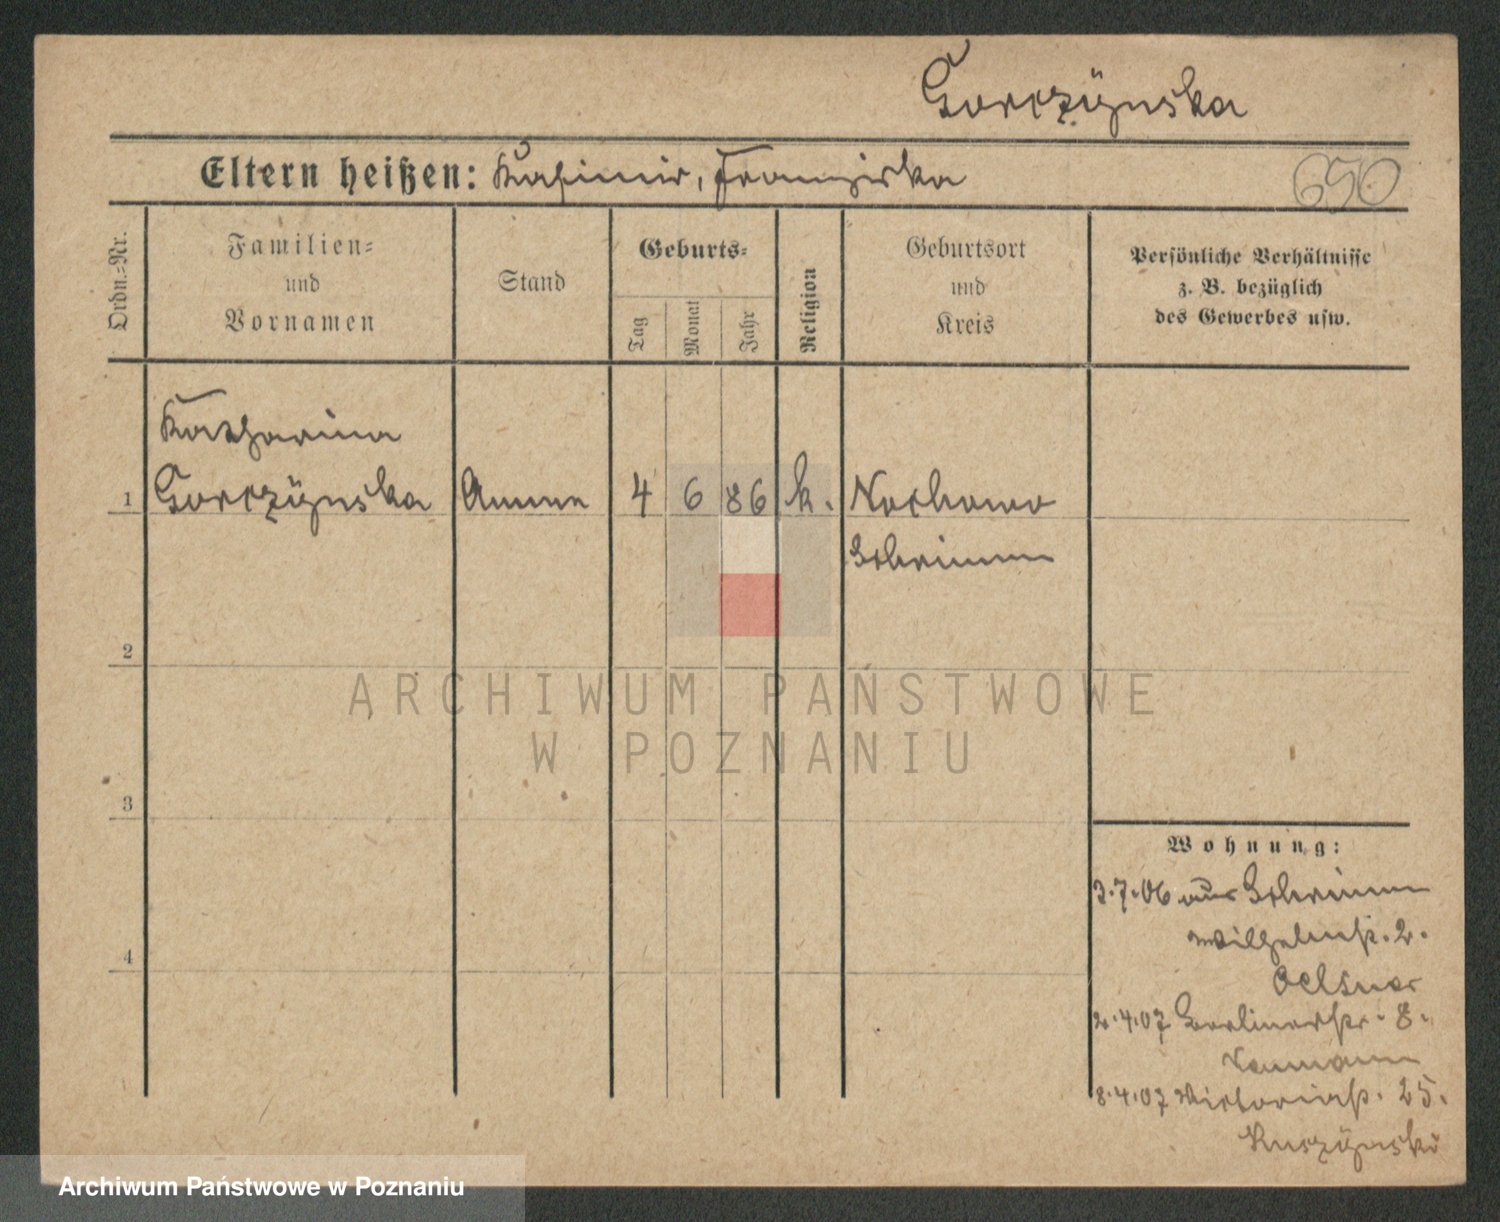 Gorczÿnska
Eltern heißen: Kasimir, Franziska
650
Ordn.=Nr.
Familien=
und
Vornamen
Stand
Geburts=
Tag
Monat
Jahr
Religion
Geburtsort
und
Kreis
Persönliche Verhältnisse
z. B. bezüglich
des Gewerbes usw.
Katharina
1 Gorczÿnska Amme 4 6 86 k. Nochowo
Schrimm
2
ARCHIWUM PAŃSTWOWE
W POZNANIU
3
Wohnung:
3.7.06 aus Schrimm
Wilhelmstr. 2.
Oelsner
4
2.4.07 Berlinerstr. 8.
Naumann
8.4.07 Victoriastr. 25.
Kuczÿnski
Archiwum Państwowe w Poznaniu